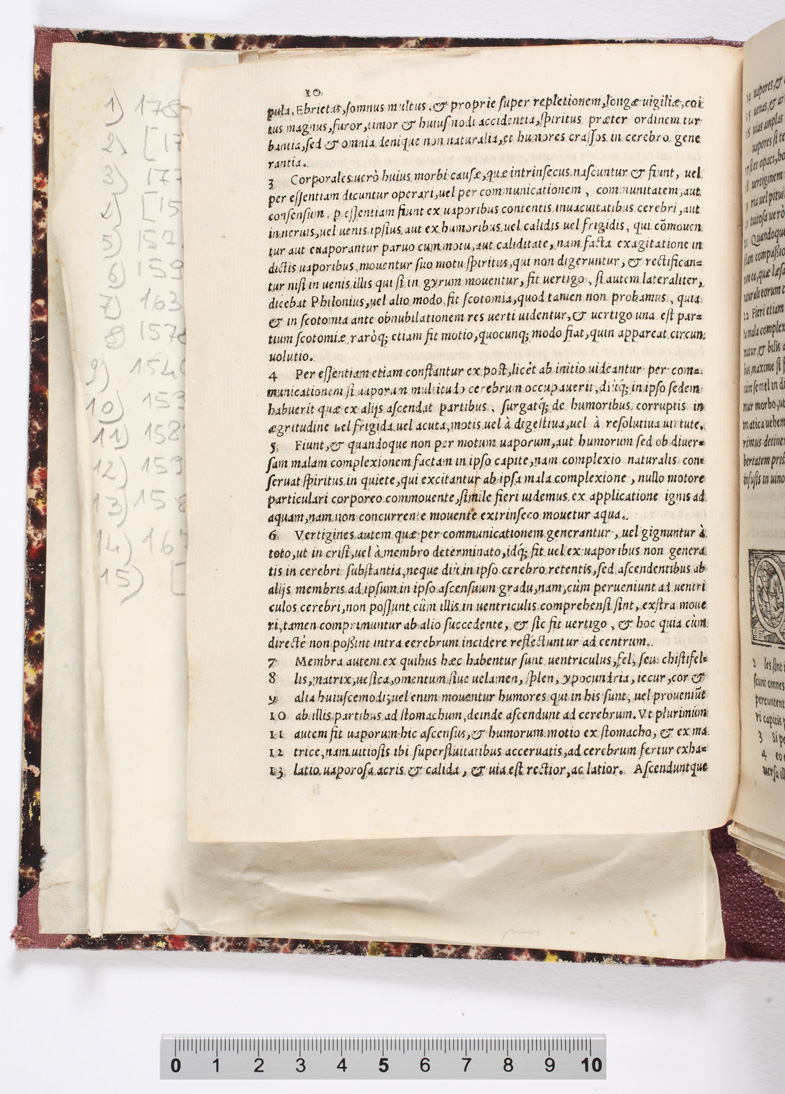 10
pula, Ebrietas, somnus multus, & proprie super repletionem, longæ uigiliæ, coi
tus magnus, furor, timor & huiusmodi accidentia, spiritus præter ordinem tur
bantia, sed & omnia denique non naturalia, et humores crassos in cerebro gene
rantia.
3 Corporales uerò huius morbi causæ, quæ intrinsecus nascuntur & fiunt, uel
per essentiam dicuntur operari, uel per communicationem, communitatem, aut
consensum, p essentiam fiunt ex uaporibus contentis in uacuitatibus cerebri, aut
in neruis, uel uenis ipsius, aut ex humoribus uel calidis uel frigidis, qui cõmouen
tur aut euaporantur paruo cum motu, aut caliditate, nam facta exagitatione in
dictis uaporibus, mouentur suo motu spiritus, qui non digeruntur, & rectifican=
tur nisi in uenis, illis qui si in gyrum mouentur, fit uertigo, si autem lateraliter,
dicebat Philonius, uel alio modo, fit scotomia, quod tamen non probamus, quia
& in scotomia ante obnubilationem res uerti uidentur, & uertigo una est par=
tium scotomiæ, raròq; etiam fit motio, quocunq; modo fiat, quin appareat circun
uolutio.
4 Per essentiam etiam constantur ex post, licèt ab initio uideantur per com=
municationem si uaporum multitudo cerebrum occupauerit, diuq; in ipso sedem
habuerit quæ ex alijs ascendat partibus, surgatq; de humoribus corruptis in
ægritudine uel frigida uel acuta, motis uel à digestiua, uel à resolutiua uirtute.
5 Fiunt, & quandoque non per motum uaporum, aut humorum sed ob diuer=
sam malam complexionem factam in ipso capite, nam complexio naturalis con=
seruat spiritus in quiete, qui excitantur ab ipsa mala complexione, nullo motore
particulari corporeo commouente, simile fieri uidemus ex applicatione ignis ad
aquam, nam non concurrente mouente extrinseco mouetur aqua.
6 Vertigines autem quæ per communicationem generantur, uel gignuntur à
toto, ut in crisi, uel à membro determinato, idq; fit uel ex uaporibus non genera
tis in cerebri substantia, neque diu in ipso cerebro retentis, sed ascendentibus ab
alijs membris ad ipsum in ipso ascensuum gradu, nam, cùm perueniunt ad uentri
culos cerebri, non possunt cùm illis in uentriculis comprehensi sint, extra moue
ri, tamen comprimuntur ab alio succedente, & sic fit uertigo, & hoc quia cùm
directè non possint intra cerebrum incidere reflectuntur ad centrum.
7 Membra autem ex quibus hæc habentur sunt uentriculus, fel, seu chistifel=
8 lis, matrix, uesica, omentum siue uelamen, splen, ypocundria, iecur, cor &
9 alia huiuscemodi; uel enim mouentur humores qui in his sunt, uel proueniũt
10 ab illis partibus ad stomachum, deinde ascendunt ad cerebrum. Vt plurimum
11 autem fit uaporum hic ascensus, & humorum motio ex stomacho, & ex ma
12 trice, nam uitiosis ibi superfluitatibus aceruatis, ad cerebrum fertur exha=
13 latio uaporosa acris & calida, & uia est rectior, ac latior. Ascenduntque
1) 178
2) [17
3) 177
4) [15
5) 157
6) 159
7) 163
8) 157
9) 154
10) 153
11) 158
12) 159
13) 158
14) 167
15) [
0 1 2 3 4 5 6 7 8 9 10